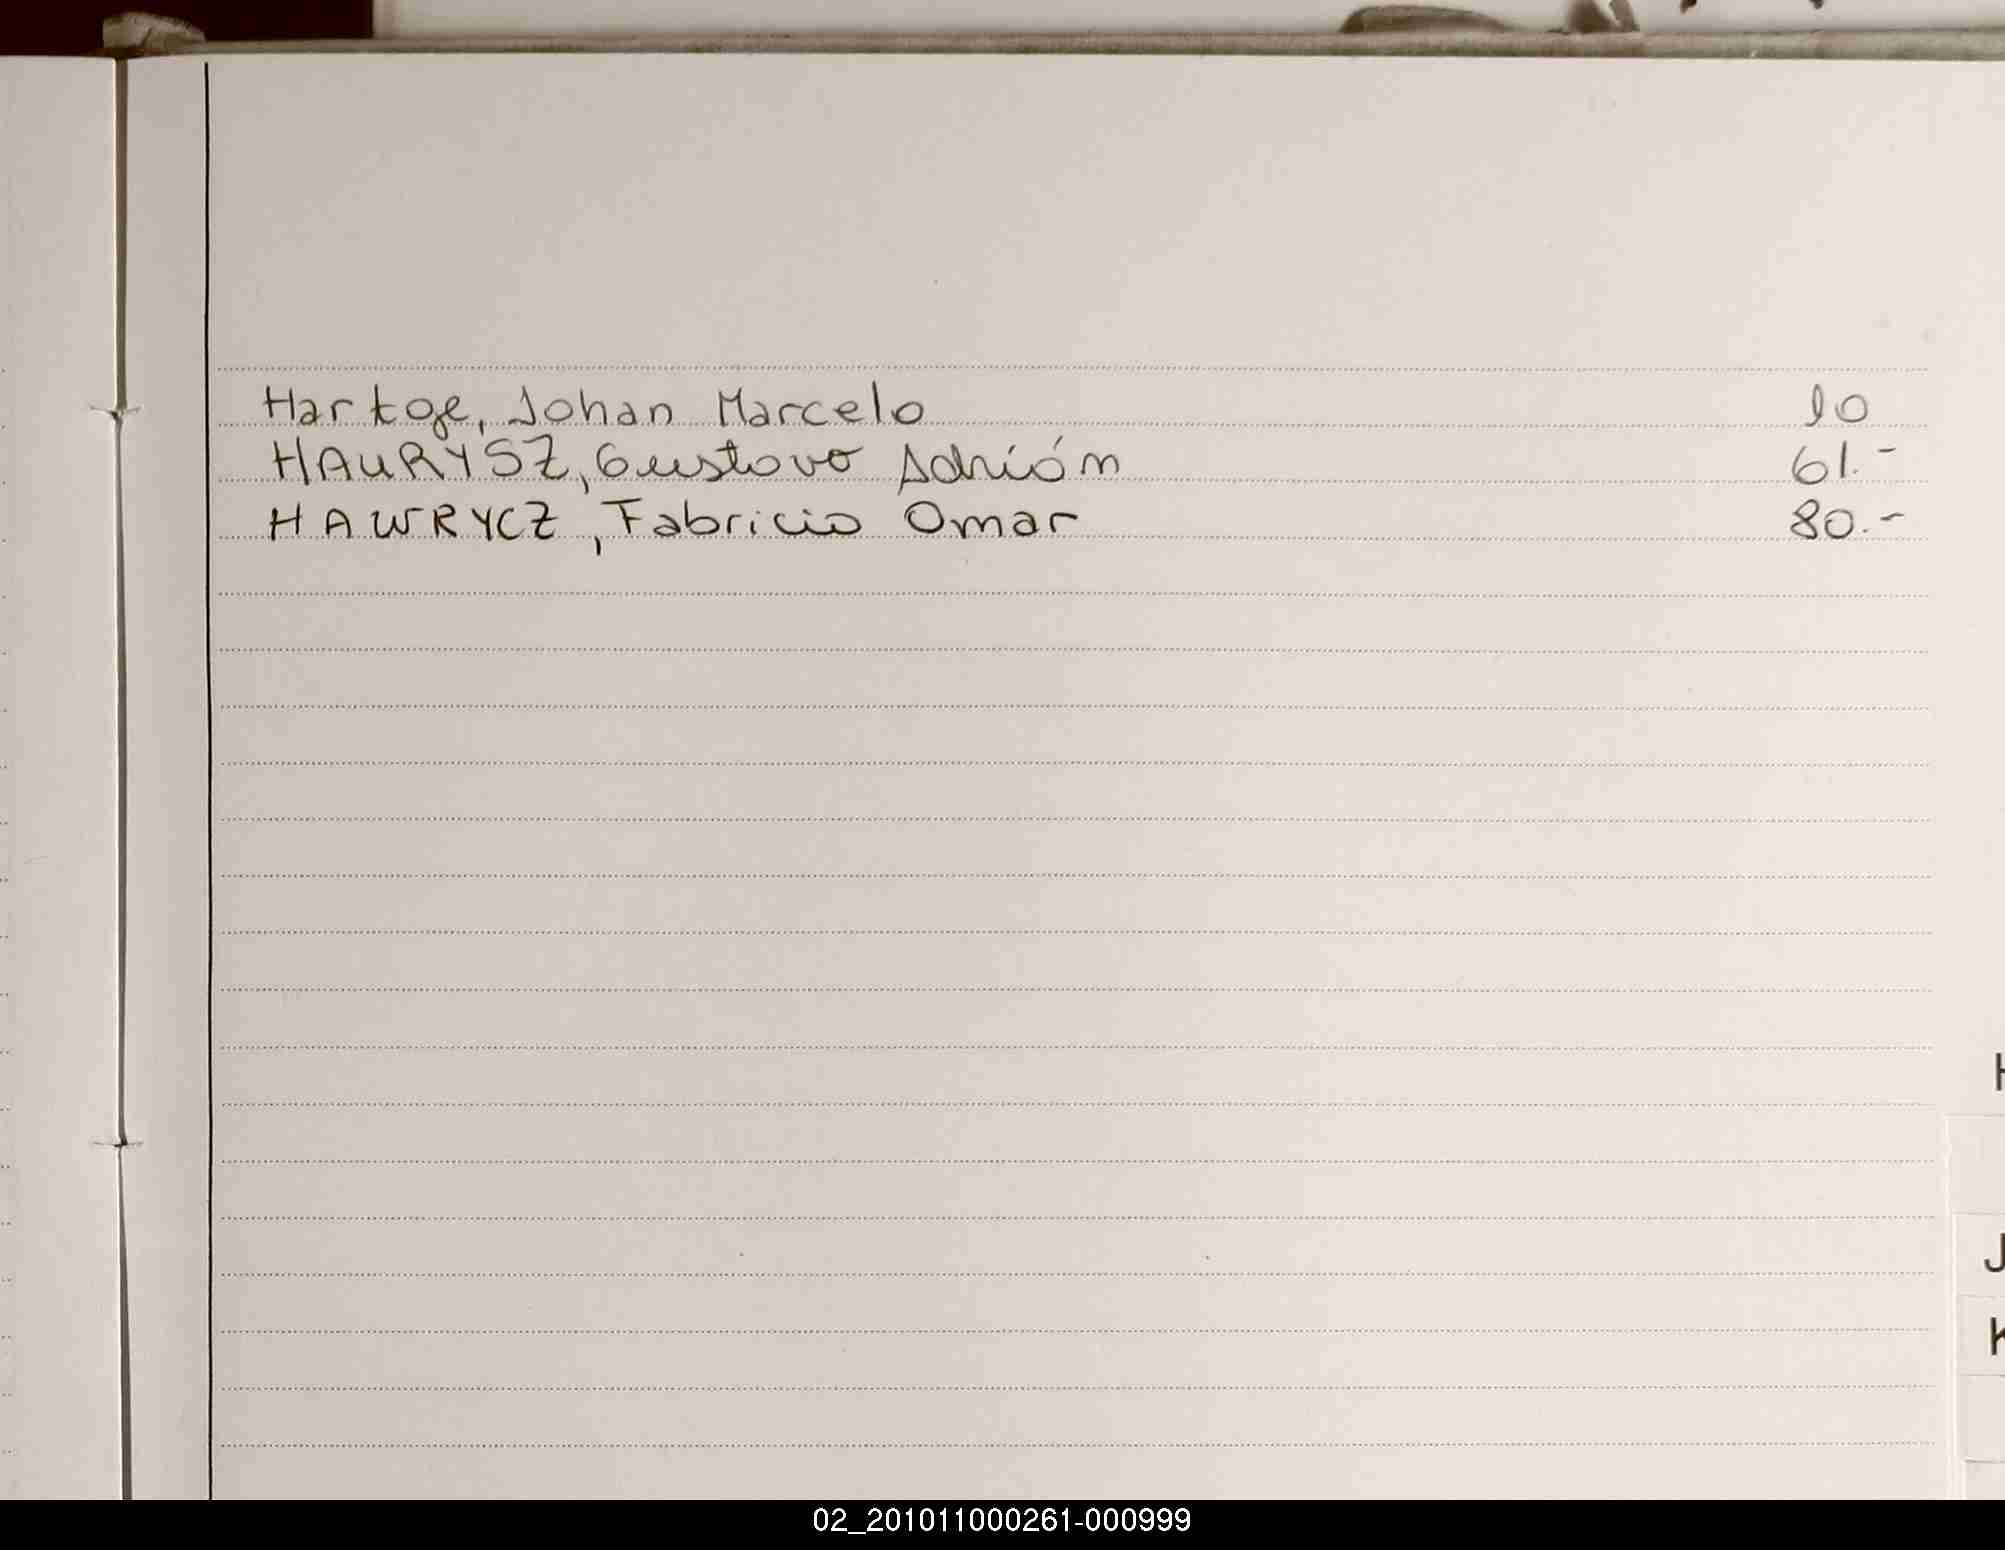 Hartge, Johan Marcelo 10
HAURYSZ, Gustavo Adrián 61.-
HAWRYCZ, Fabricio Omar 80.-
H
J
K
02_201011000261-000999